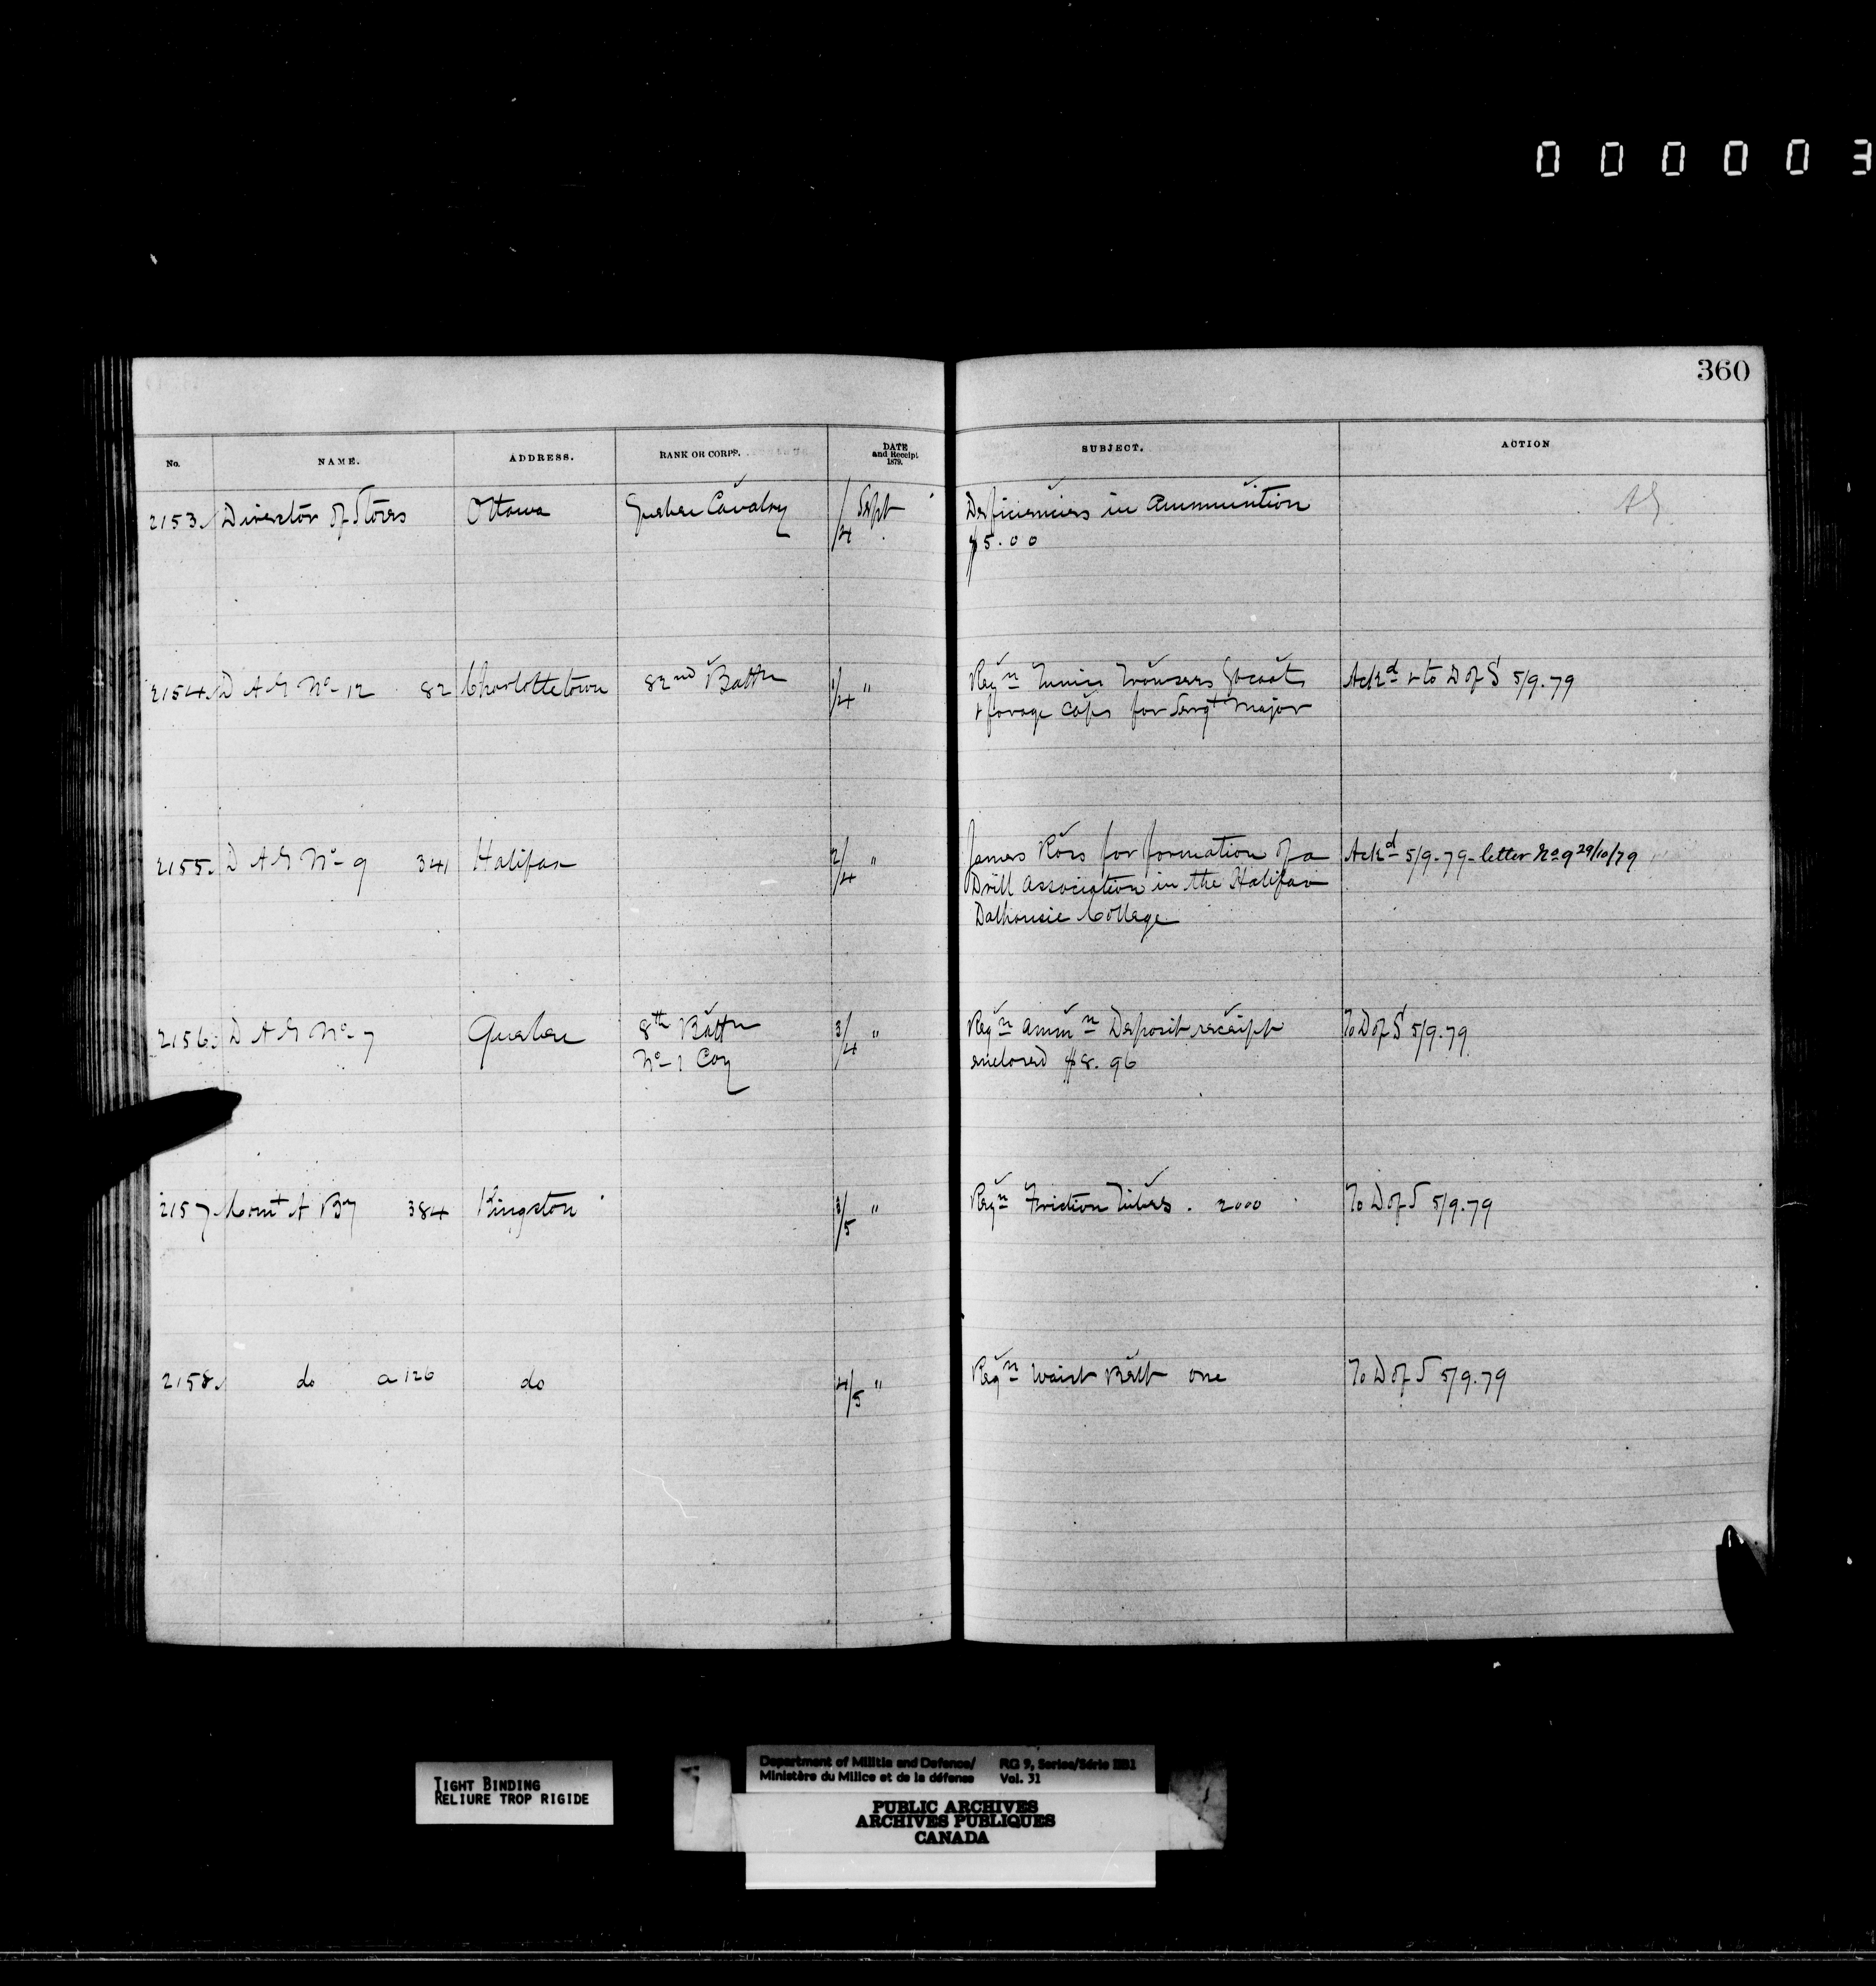 000003
360
No. NAME. ADDRESS. RANK OR CORPS. DATE and Receipt 1879. SUBJECT. ACTION
2153. Director of Stores Ottawa Quebec Cavalry /4 Sept Deficiencies in Ammunition
$5.00
2154. D A G No 12 82 Charlottetown 82nd Battn 1/4 " Reqn Tunics Trousers Gt coats Ackd & to D of S 5/9.79
& forage Caps for Sergt Major
2155. D A G No 9 341 Halifax 2/4 " James Ross for formation of a Ackd 5/9.79 - letter No 9 29/10/79
Drill Association in the Halifax
Dalhousie College
2156. D A G No 7 Quebec 8th Battn 3/4 " Reqn Ammn Deposit receipt To D of S 5/9.79
No 1 Coy enclosed $8.96
2157 Comt A By 384 Kingston 3/5 " Reqn Friction Tubes. 2000 To D of S 5/9.79
2158. do a 126 do 4/5 " Reqn Waist Belt one To D of S 5/9.79
TIGHT BINDING
RELIURE TROP RIGIDE
Department of Militia and Defence/ RG 9, Series/Série IIB1
Ministère du Milice et de la défense Vol. 31
PUBLIC ARCHIVES
ARCHIVES PUBLIQUES
CANADA